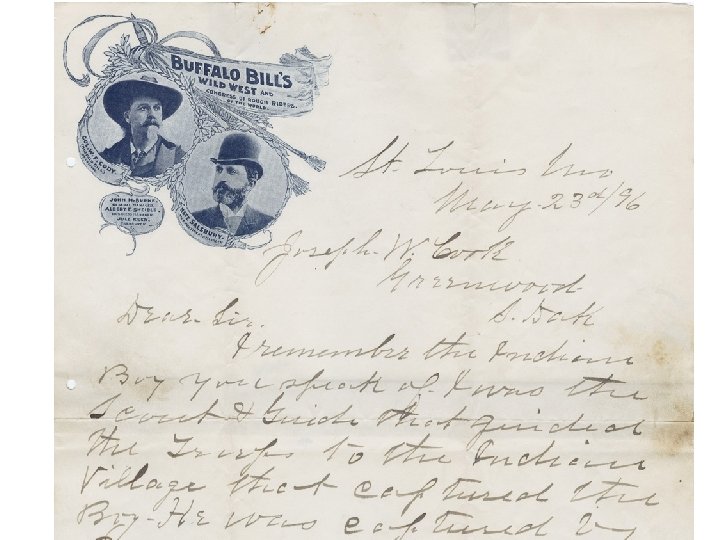 BUFFALO BILL'S
WILD WEST AND
CONGRESS OF ROUGH RIDERS
OF THE WORLD.
COL. W. F. CODY.
NATE SALSBURY.
JOHN M. BURKE,
GENERAL MANAGER.
ALBERT E. SHEIBLE,
JULE KEEN,
St. Louis Mo
May 23rd/96
Joseph. W. Cook
Greenwood
S. Dak
Dear. Sir.
I remember the Indian
Boy you speak of. I was the
Scout & Guide that guided
the Troops to the Indian
Village that captured the
Boy - He was captured by